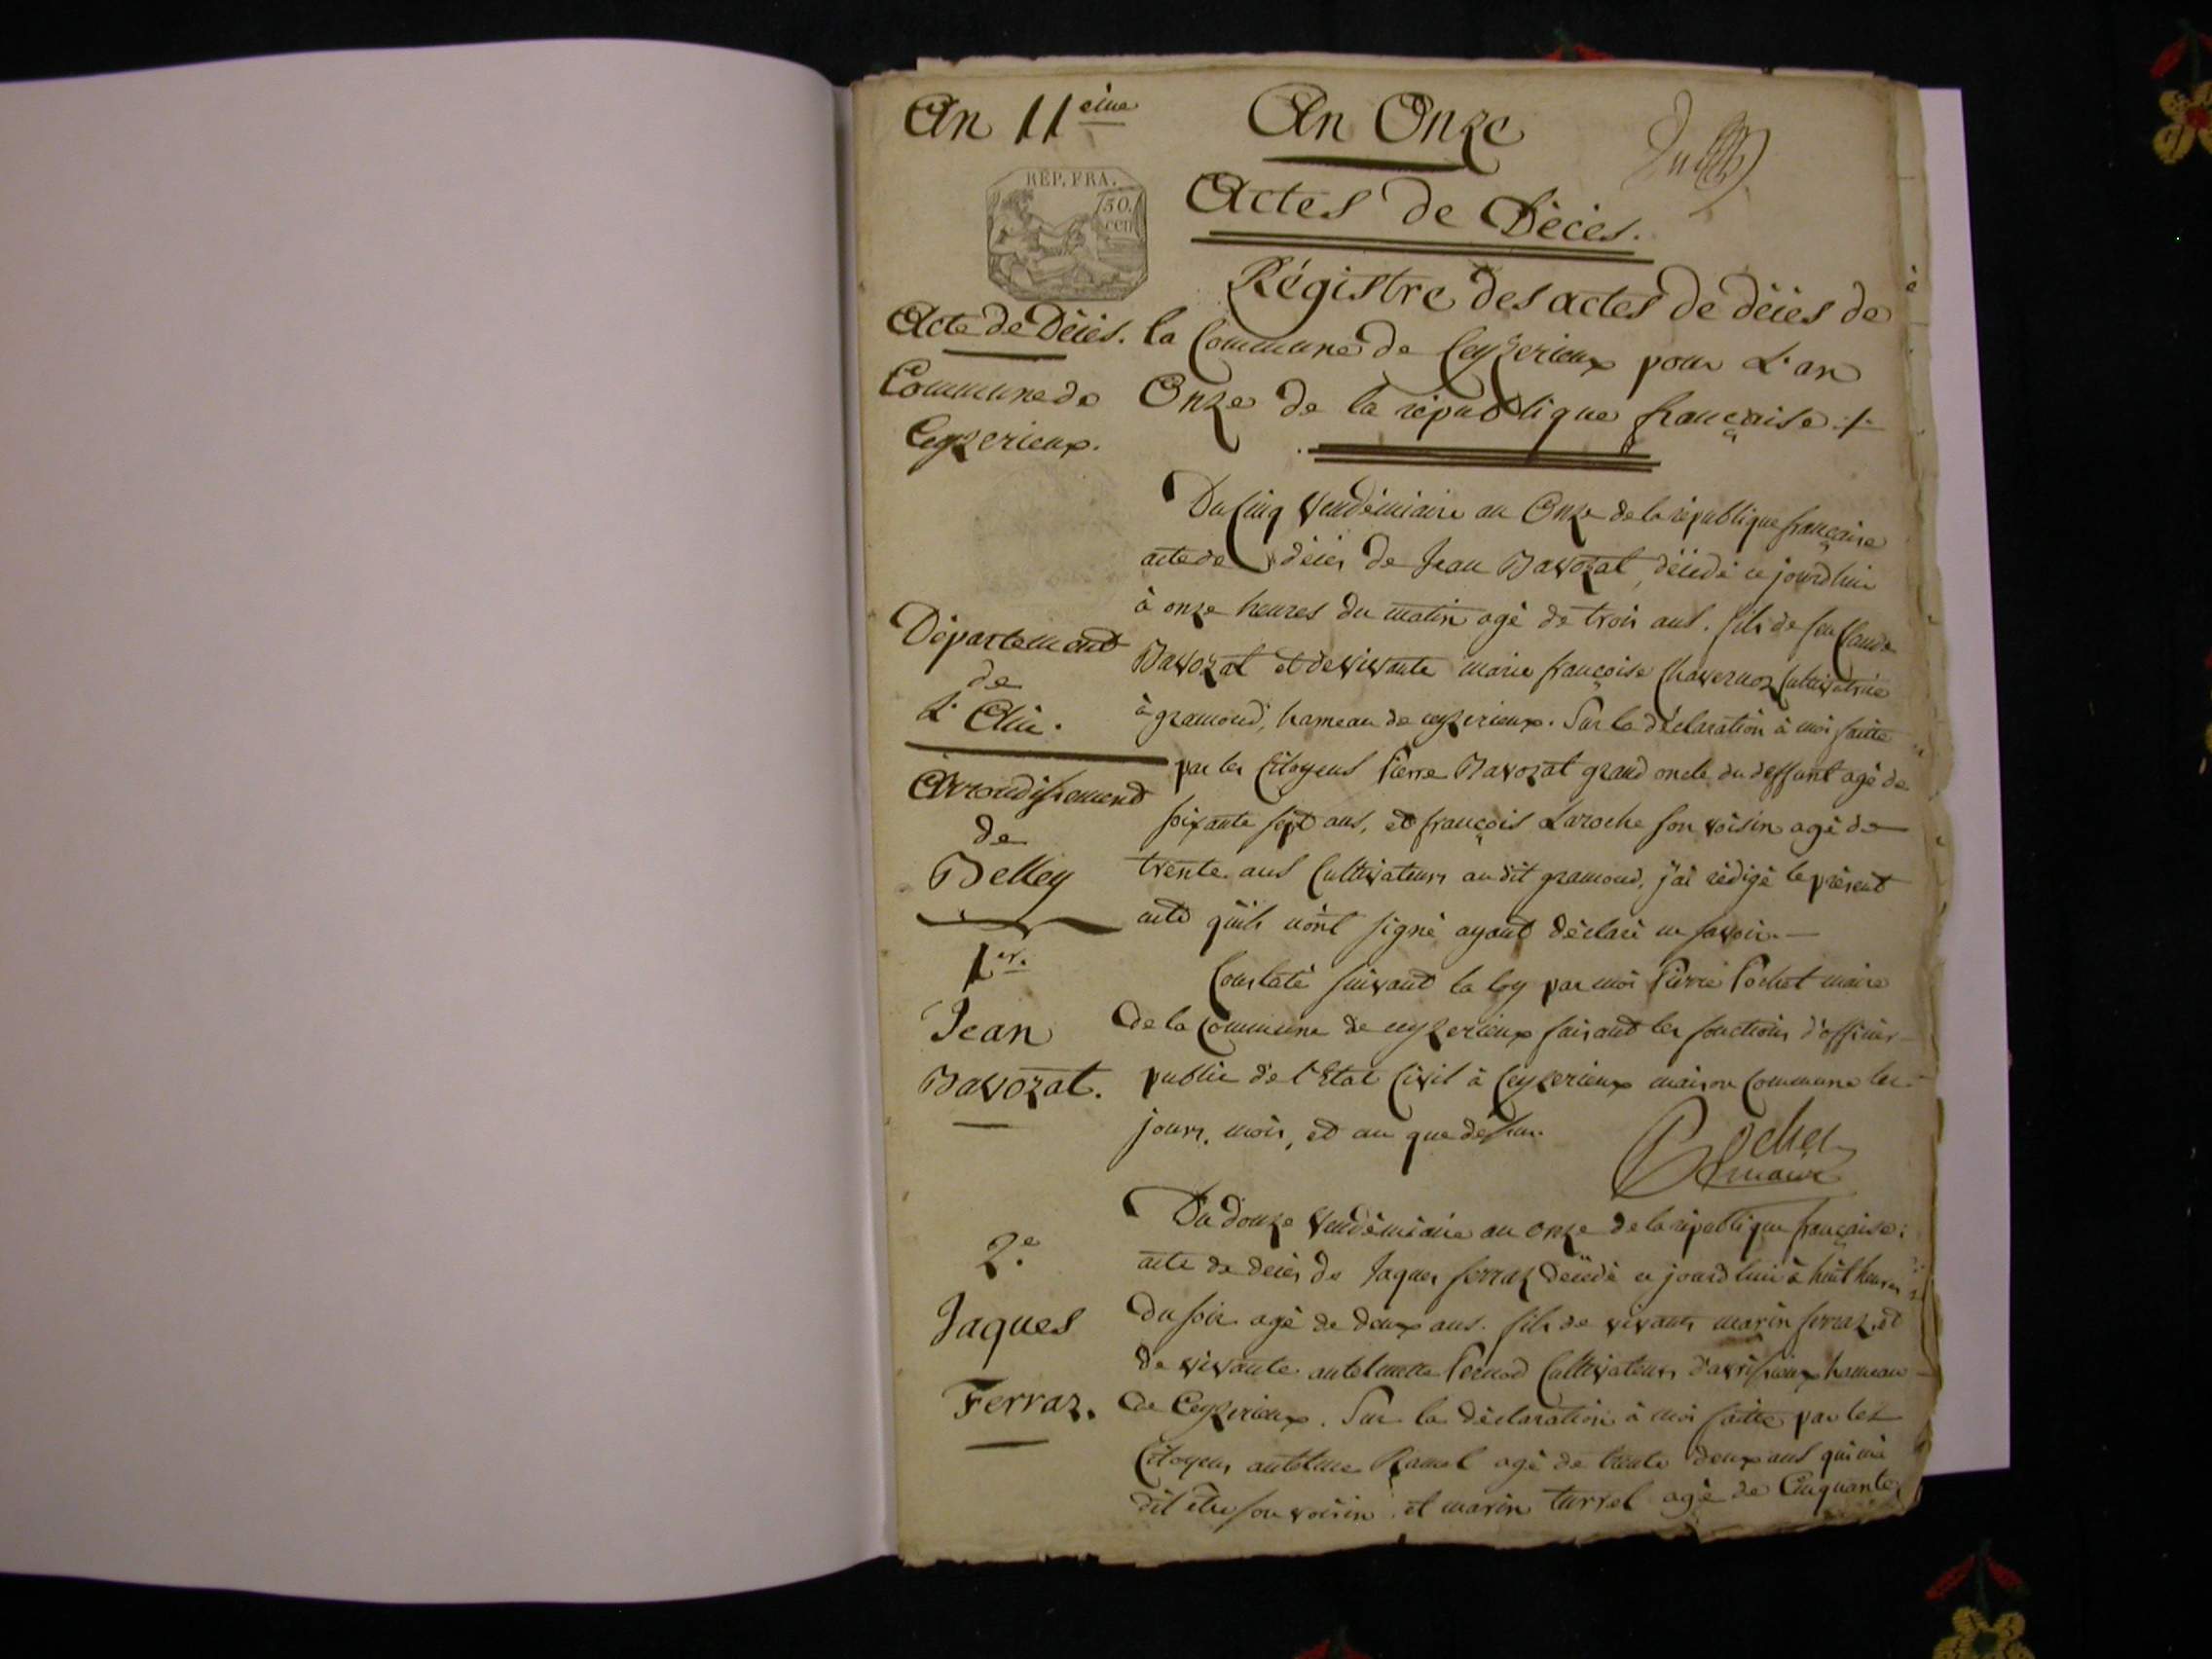 An 11eme
An Onze
REP. FRA.
50.
cen
Actes de Décès.
Régistre des actes de décès de
la Commune de Ceyzerieux pour L'an
Onze de la république française ./.
Acte de Décès.
Commune de
Ceyzerieux.
Département
de
L'Ain.
Arrondissement
de
Belley
1er.
Jean
Bavozat.
Du Cinq Vendémiaire an Onze de la république française
acte de décès de Jean Bavozat, décédé ce jourdhui
à onze heures du matin agé de trois ans. fils de feu Claude
Bavozat et de vivante marie françoise Chavernoz Cultivatrice
à gramond, hameau de ceyzerieux. Sur la déclaration à moi faitte
par les Citoyens Pierre Bavozat grand oncle du deffunt agé de
soixante sept ans, et françois Laroche son voisin agé de
trente ans Cultivateurs au dit gramond, j'ai rédigé le présent
acte qu'ils n'ont signé ayant déclaré ne savoir.
Constaté suivant la loy par moi Pierre Pochet maire
de la Commune de ceyzerieux faisant les fonctions d'officier
public de l'Etat Civil à Ceyzerieux maison Commune les
jours, mois, et an que dessus.
Pochet
maire
2.e
Jaques
Ferraz.
Du douze Vendémiaire an onze de la république française:
acte de decès de Jaques ferraz décédé ce jourdhui à huit heures
du soir agé de deux ans. fils de vivants marin ferraz, et
de vivante antelmette Pernod Cultivateurs d'avrissieux hameau
de Ceyzerieux. Sur la déclaration à moi faitte par les
Citoyens antelme Ramel agé de trente deux ans qui m'a
dit être son voisin. et marin turrel agé de Cinquante